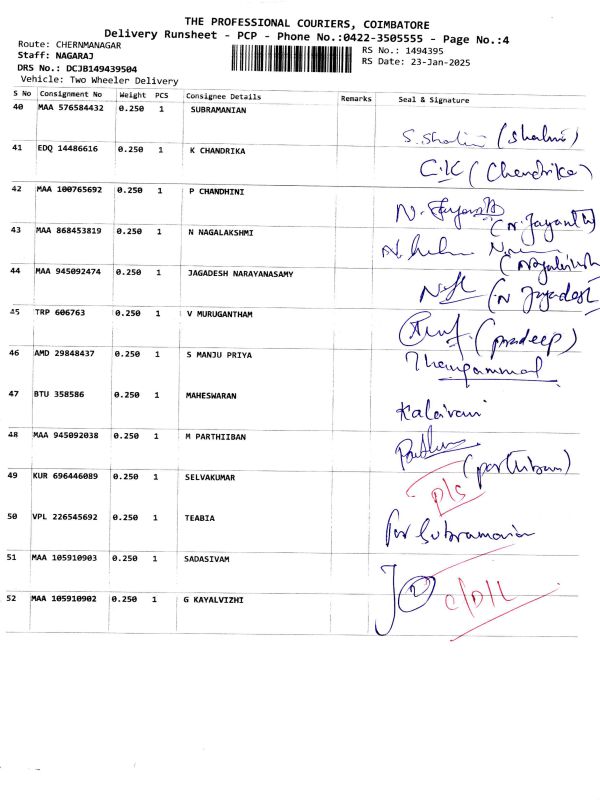 THE PROFESSIONAL COURIERS, COIMBATORE
Delivery Runsheet - PCP - Phone No.:0422-3505555 - Page No.:4
Route: CHERNMANAGAR
Staff: NAGARAJ
DRS No.: DCJB149439504
Vehicle: Two Wheeler Delivery
RS No.: 1494395
RS Date: 23-Jan-2025
S No Consignment No Weight PCS Consignee Details Remarks Seal & Signature
40 MAA 576584432 0.250 1 SUBRAMANIAN
S. Shalini (Shalini)
41 EDQ 14486616 0.250 1 K CHANDRIKA
C.K (Chandrika)
42 MAA 100765692 0.250 1 P CHANDHINI
43 MAA 868453819 0.250 1 N NAGALAKSHMI
44 MAA 945092474 0.250 1 JAGADESH NARAYANASAMY
45 TRP 606763 0.250 1 V MURUGANTHAM
(pradeep)
46 AMD 29848437 0.250 1 S MANJU PRIYA
Thangammal
47 BTU 358586 0.250 1 MAHESWARAN
Kalaivani
48 MAA 945092038 0.250 1 M PARTHIIBAN
49 KUR 696446089 0.250 1 SELVAKUMAR
D/S
50 VPL 226545692 0.250 1 TEABIA
51 MAA 105910903 0.250 1 SADASIVAM
52 MAA 105910902 0.250 1 G KAYALVIZHI
C/D/L